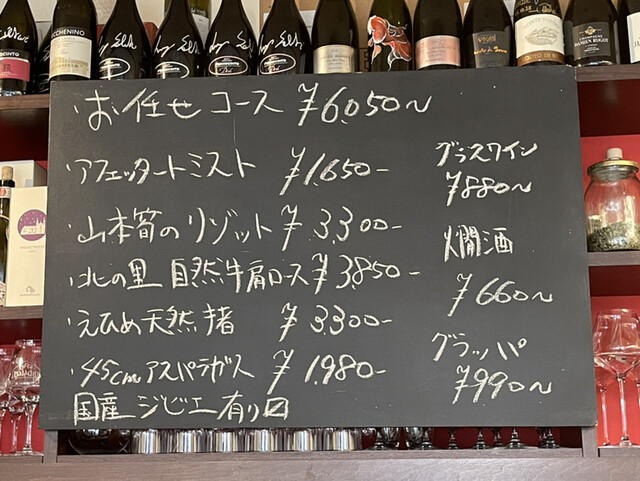 ・お任せコース ¥6,050〜
・アフェッタートミスト ¥1,650-
・山本筍のリゾット ¥3,300-
・北の里 自然牛肩ロース ¥3,850-
・えひめ天然猪 ¥3,300-
・45cmアスパラガス ¥1,980-
国産ジビエ有り〼
グラスワイン
¥880〜
燗酒
¥660〜
グラッパ
¥990〜